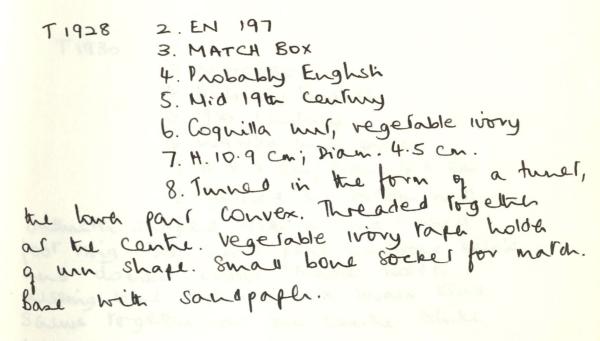 T 1928 2. EN 197
3. MATCH BOX
4. Probably English
5. Mid 19th century
6. Coquilla nut, vegetable ivory
7. H. 10.9 cm; Diam. 4.5 cm.
8. Turned in the form of a tower,
the lower part convex. Threaded together
at the centre. Vegetable ivory taper holder
of urn shape. Small bone socket for match.
Base with sandpaper.